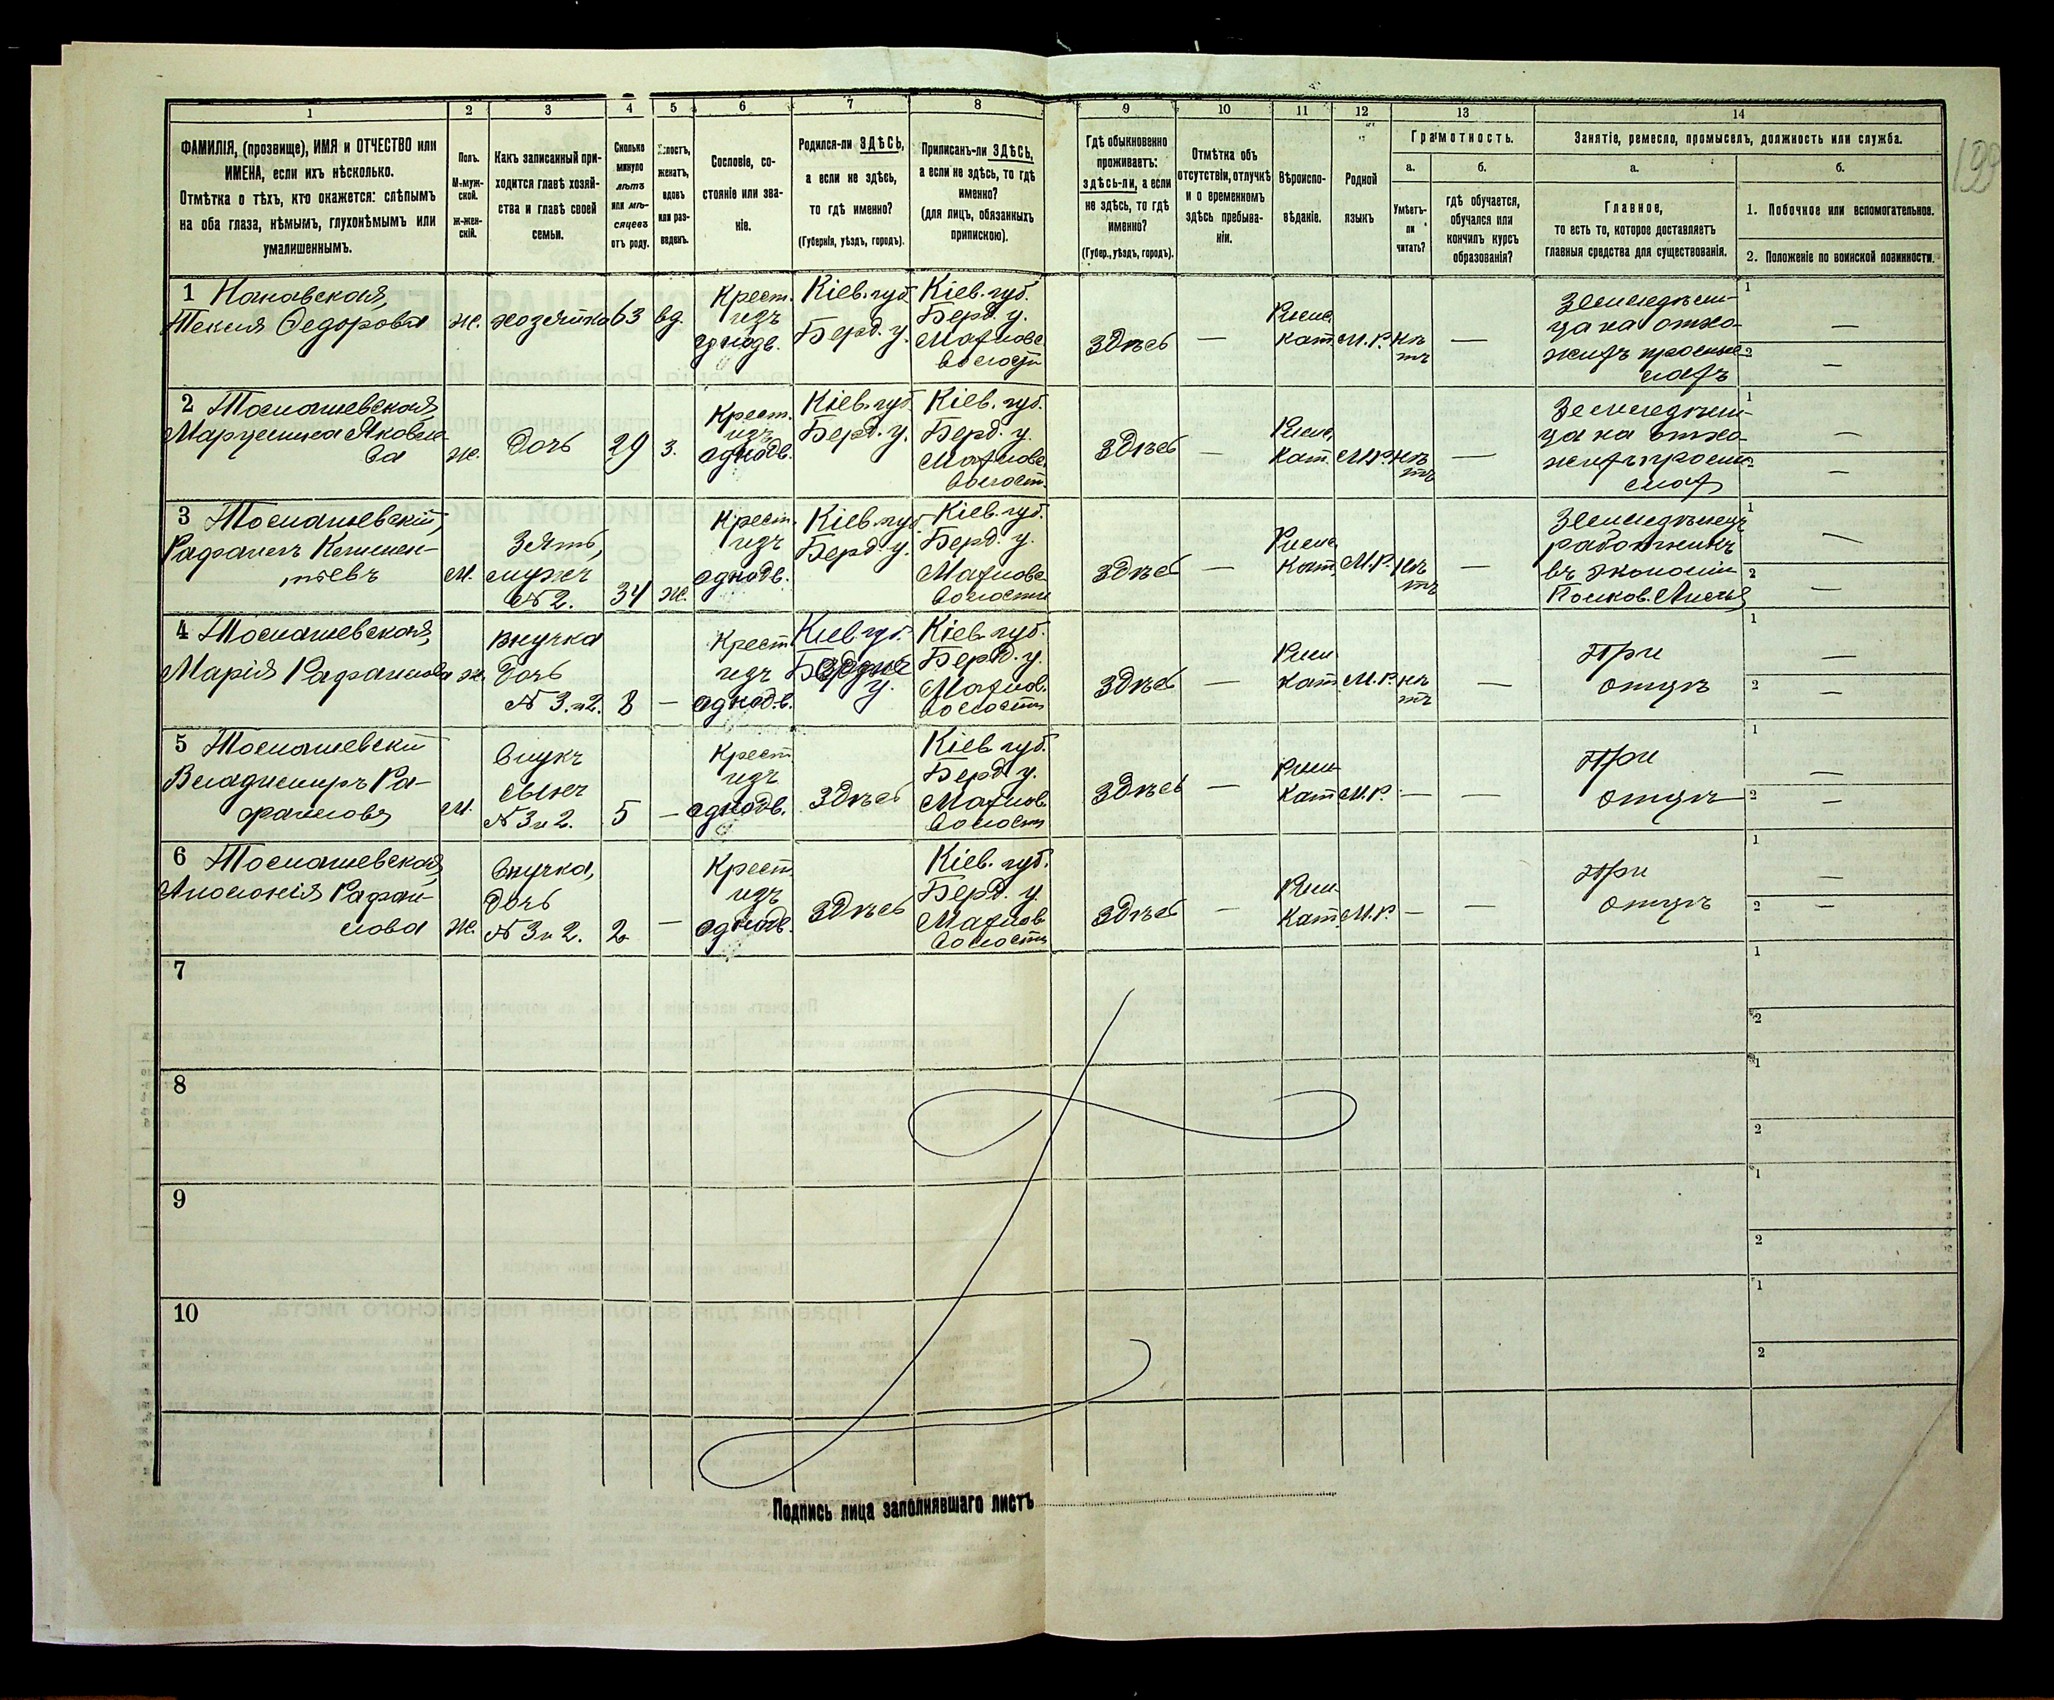 1 2 3 4 5 6 7 8 9 10 11 12 13 14
ФАМИЛІЯ, (прозвище), ИМЯ и ОТЧЕСТВО или
ИМЕНА, если ихъ нѣсколько.
Отмѣтка о тѣхъ, кто окажется: слѣпымъ
на оба глаза, нѣмымъ, глухонѣмымъ или
умалишеннымъ.
Полъ.
М-муж-
ской.
ж-жен-
скій.
Какъ записанный при-
ходится главѣ хозяй-
ства и главѣ своей
семьи.
Сколько
минуло
лѣтъ
или мѣ-
сяцевъ
отъ роду.
Холостъ,
женатъ,
вдовъ
или раз-
веденъ.
Сословіе, со-
стояніе или зва-
ніе.
Родился-ли ЗДѢСЬ,
а если не здѣсь,
то гдѣ именно?
(Губернія, уѣздъ, городъ).
Приписанъ-ли ЗДѢСЬ,
а если не здѣсь, то гдѣ
именно?
(для лицъ, обязанныхъ
припискою).
Гдѣ обыкновенно
проживаетъ:
здѣсь-ли, а если
не здѣсь, то гдѣ
именно?
(Губер., уѣздъ, городъ).
Отмѣтка объ
отсутствіи, отлучкѣ
и о временномъ
здѣсь пребыва-
ніи.
Вѣроиспо-
вѣданіе.
Родной
языкъ
Грамотность.
а.
Умѣетъ-
ли
читать?
б.
гдѣ обучается,
обучался или
кончилъ курсъ
образованія?
Занятіе, ремесло, промыселъ, должность или служба.
а.
Главное,
то есть то, которое доставляетъ
главныя средства для существованія.
б.
1. Побочное или вспомогательное.
2. Положеніе по воинской повинности.
1
Текля Ѳедорова
ж.
хозяйка
63
вд.
Крест.
изъ
однодв.
Кіев. губ.
Берд. у.
Кіев. губ.
Берд. у.
Махнов.
волости
здѣсь
—
Римс.
кат.
М.Р.
нѣ
тъ
—
1 —
2 —
2 Томашевская,
ж.
дочь
29
з.
Крест.
изъ
однодв.
Кіев. губ.
Берд. у.
Кіев. губ.
Берд. у.
Махнов.
волост.
здѣсь
—
Римс.
Кат.
М.Р.
нѣ
тъ
—
1 —
2 —
3 Томашевскій,
Рафаилъ Клемен-
тьевъ
М.
Зять,
мужъ
№ 2.
34
ж.
Крест.
изъ
однодв.
Кіев. губ.
Берд. у.
Кіев. губ.
Берд. у.
Махнов.
волости
здѣсь
—
Римс.
Кат.
М.Р.
нѣ
тъ
—
Земледѣлецъ
работникъ
въ экономіи
1 —
2 —
4 Томашевская,
Марія Рафаилова
ж.
внучка
дочь
№ 3. и 2.
8
—
Крест.
изъ
однодв.
Кіев. губ.
у.
Кіев. губ.
Берд. у.
Махнов.
волости
здѣсь
—
Рим.
кат.
М.Р.
нѣ
тъ
—
При
отцѣ
1 —
2 —
5 Томашевскій
Владиміръ Ра-
фаиловъ
М.
Внукъ
сынъ
№ 3 и 2.
5
—
Крест.
изъ
однодв.
Здѣсь
Кіев. губ.
Берд. у.
Махнов.
волости
здѣсь
—
Рим.
Кат.
М.Р.
—
—
При
отцѣ
1 —
2 —
6 Томашевская,
Аполонія Рафаи-
лова
ж.
Внучка,
дочь
№ 3 и 2.
2
—
Крест.
изъ
однодв.
Здѣсь
Кіев. губ.
Берд. у.
Махнов.
волости
здѣсь
—
Рим.
Кат.
М.Р.
—
—
При
отцѣ
1 —
2 —
7
1
2
8
1
2
9
1
2
10
1
2
Подпись лица заполнявшаго листъ